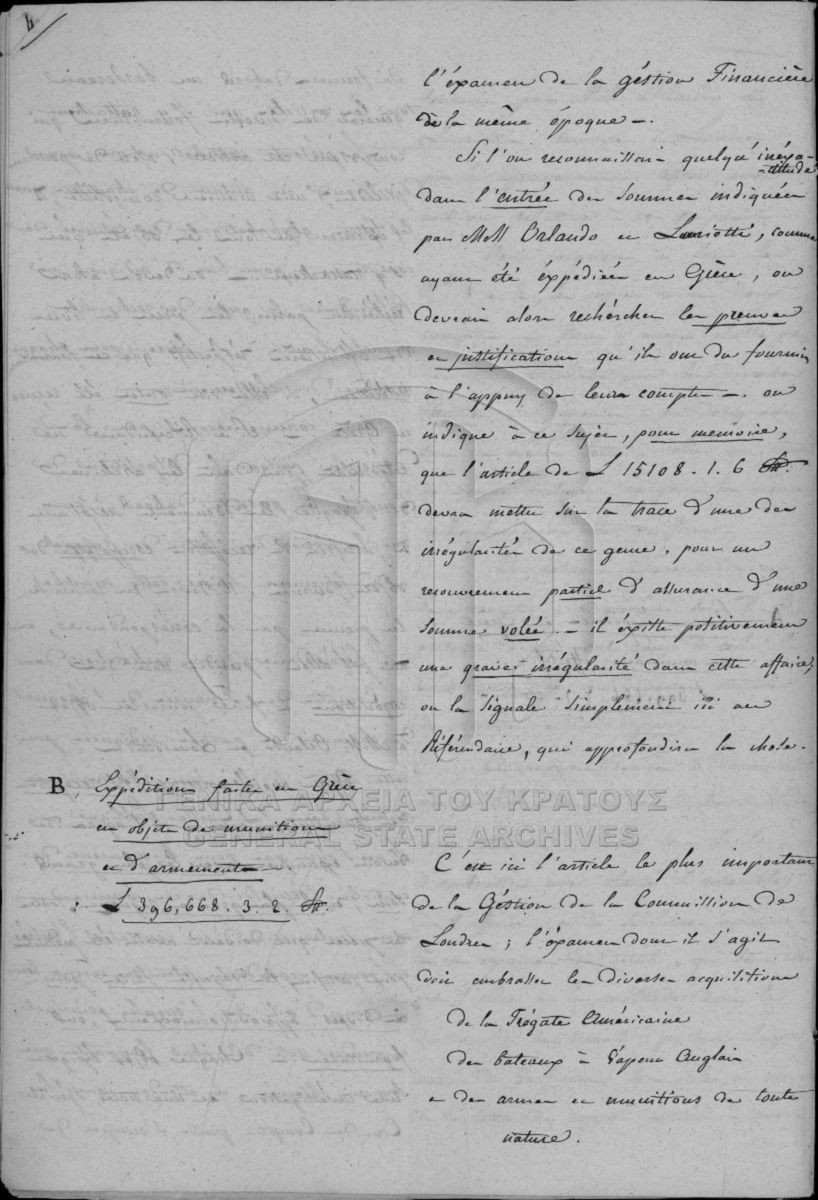 4
l'éxamen de la géstion Financière
de la même époque —.
Si l'on reconnaissait quelqu'inéxa-
-ctitude
dans l'entrée des sommes indiquées
par MM Orlando et Luriotti, comme
ayant été éxpédiées en Grèce, on
devrait alors rechércher les preuves
et justifications qu'ils ont du fournir
à l'appuy de leurs comptes —. on
indique à ce sujet, pour mémoire,
que l'article de L 15108. 1. 6 St.
devra mettre sur la trace d'une des
irrégularités de ce genre, pour un
recouvrement partiel d'assurance d'une
somme volée. — il éxiste positivement
une grave irrégularité dans cette affaire;
on la signale simplement ici au
Référendaire, qui approfondira la chose.
B Expéditions faites en Grèce
en objets de munitions
et d'armements.
: L 396,668. 3. 2. St.
C'est ici l'article le plus important
de la Géstion de la Commission de
Londres; l'éxamen dont il s'agit
doit embrasser les diverses acquisitions
de la Frégate Américaine
des bateaux à Vapeur Anglais
et des armes et munitions de toute
nature.
ΓΕΝΙΚΑ ΑΡΧΕΙΑ ΤΟΥ ΚΡΑΤΟΥΣ
GENERAL STATE ARCHIVES